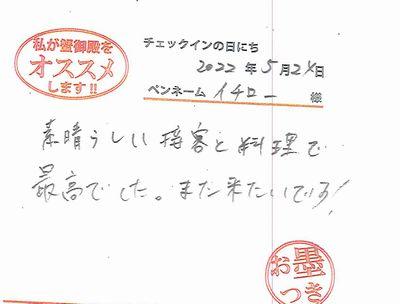 私が蟹御殿を
オススメ
します!!
チェックインの日にち
2022年5月24日
ペンネーム イチロー 様
素晴らしい接客と料理で
最高でした。また来たいです!
お墨
つき